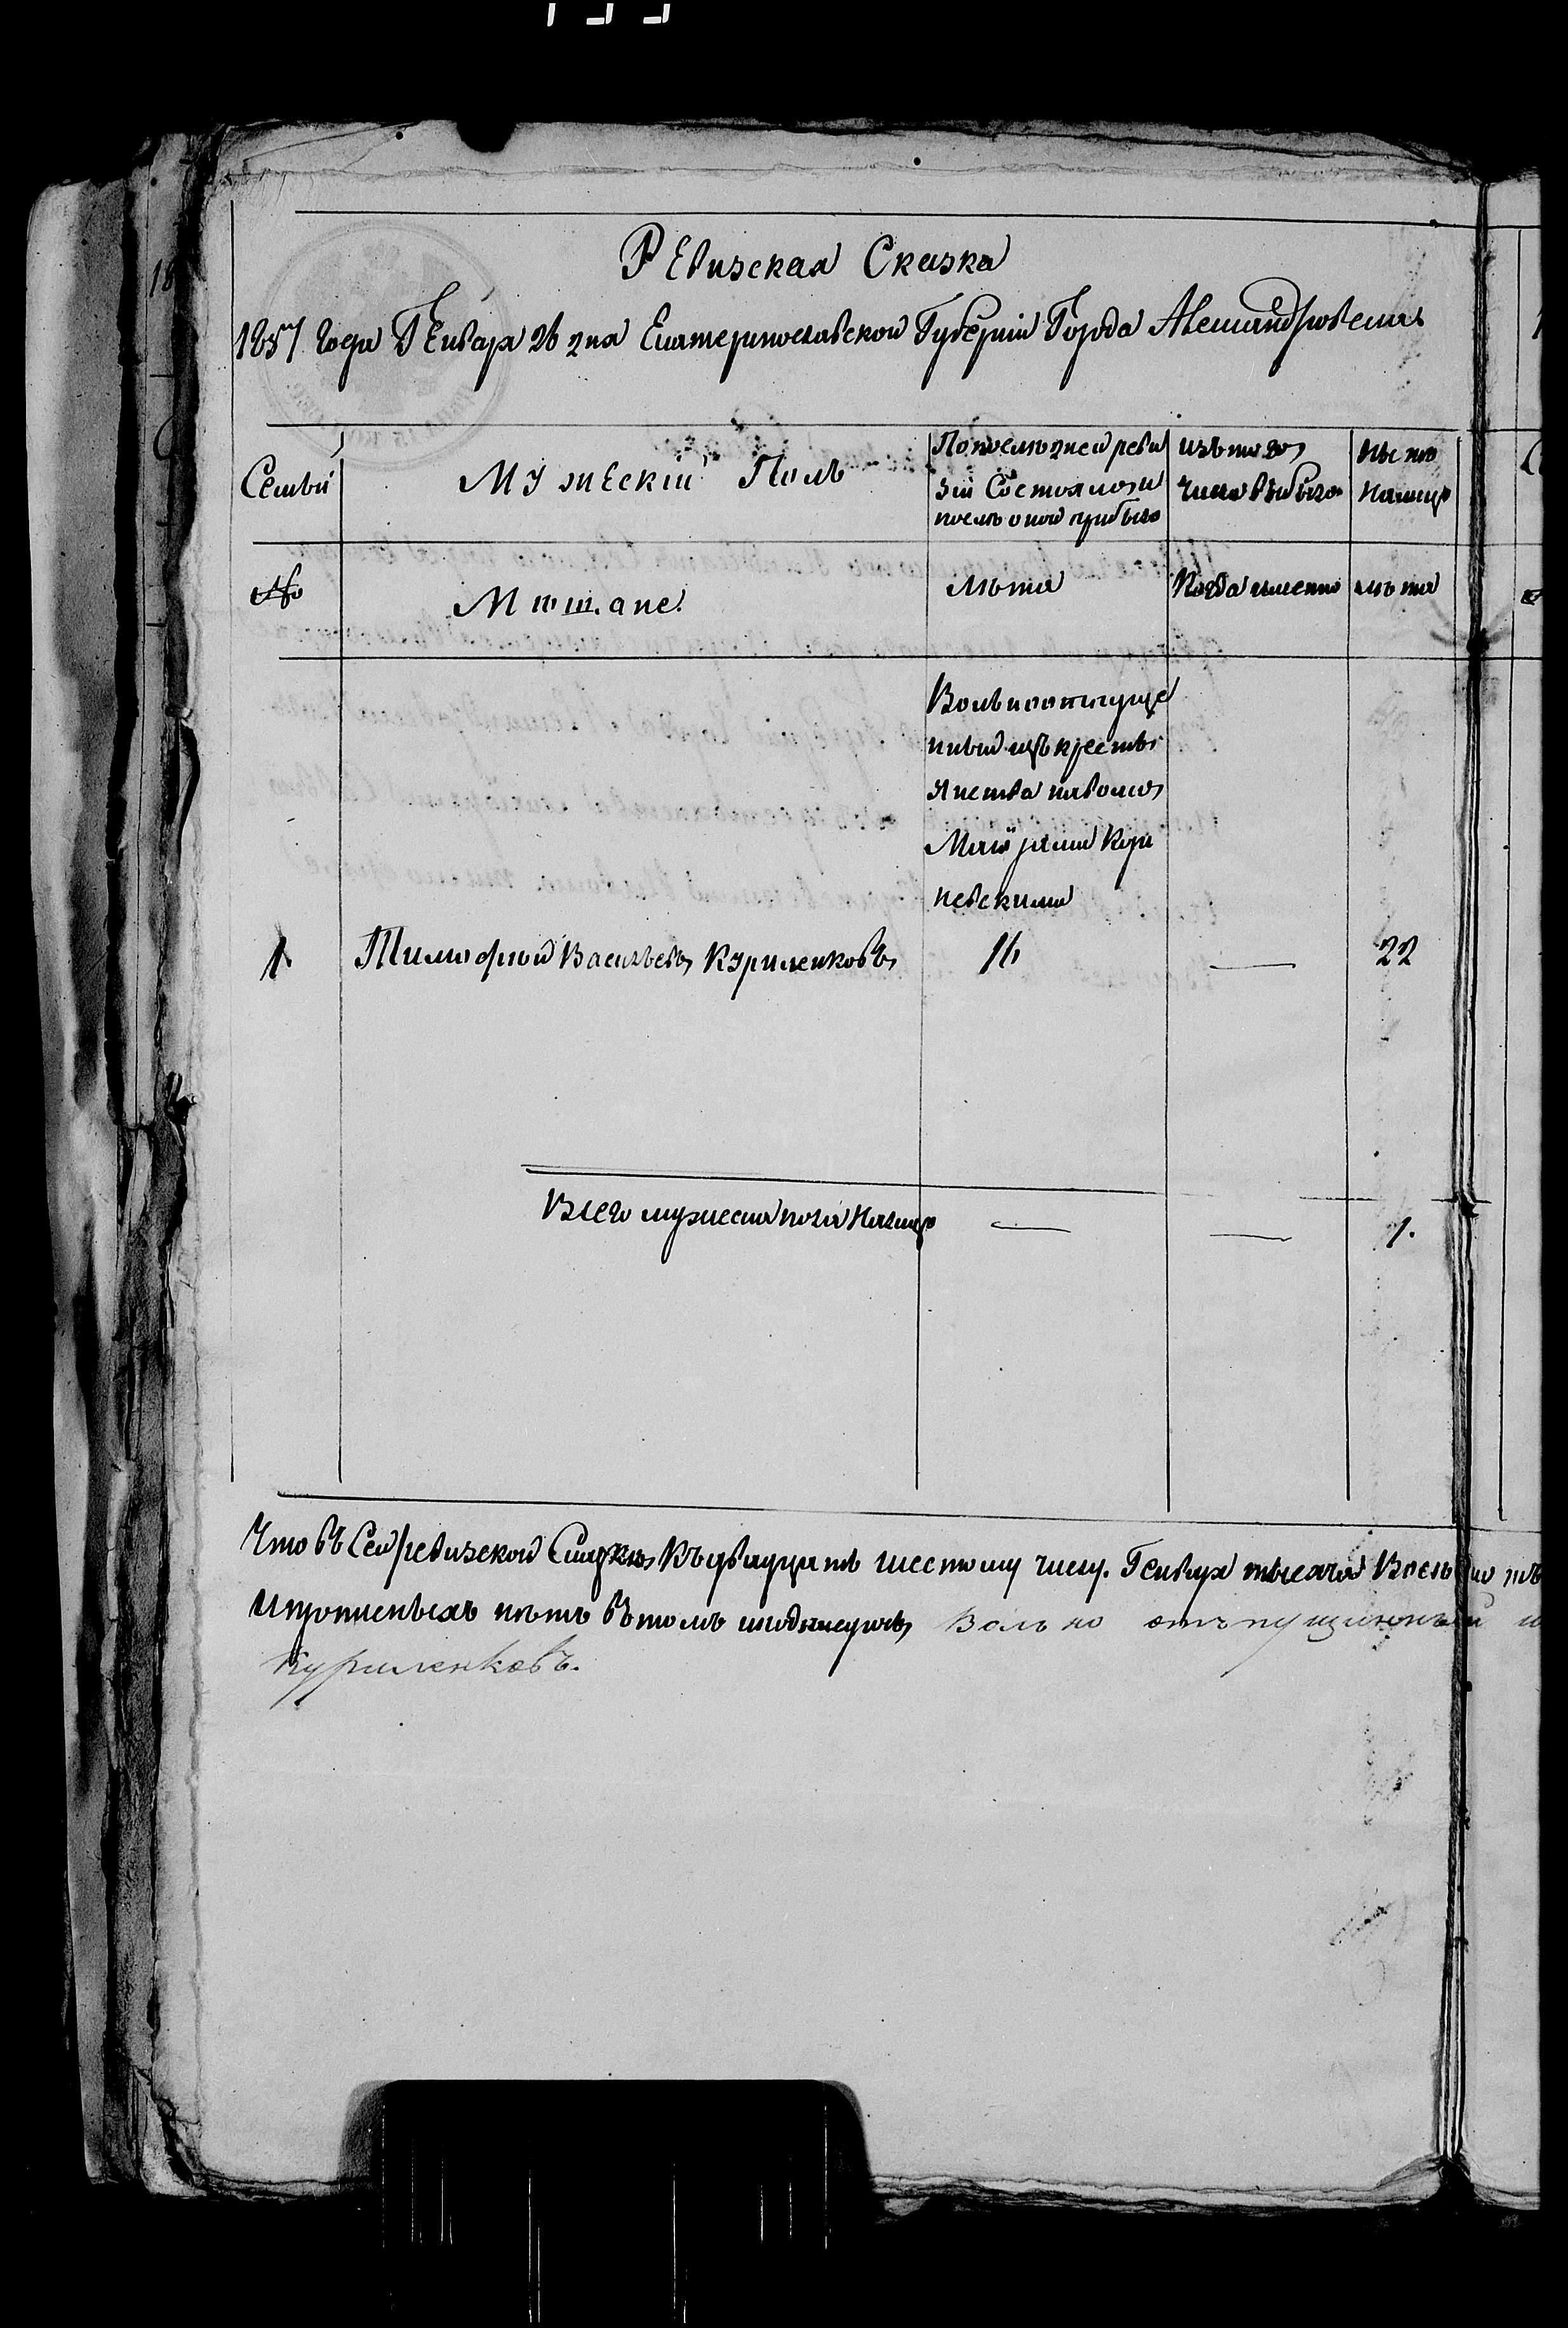 Ревизская Сказка
1857 года Генваря 26 дня Екатеринославской Губерніи Города Александровска
Семьи
Мужескій Полъ
По последней реви
зіи Состояло и
после оной прибыло
Изъ того
числа выбыло
Ныне
на лицо
№
Мещане.
Лета
Когда именно
лета
Вольноотпуще
ный изъ крестья
янства
Маіоршею
невскими
1.
Тимофей Васильевъ Куриленковъ
16
—
22
Всего мужеска пола На лицо
—
—
1.
Что въ Сей ревизской Сказке Къ двадцать шестому числу Генваря тысяча Восемь сотъ
И прописныхъ нетъ въ томъ и подписуюсь Вольно отъпущенный
Куриленковъ.